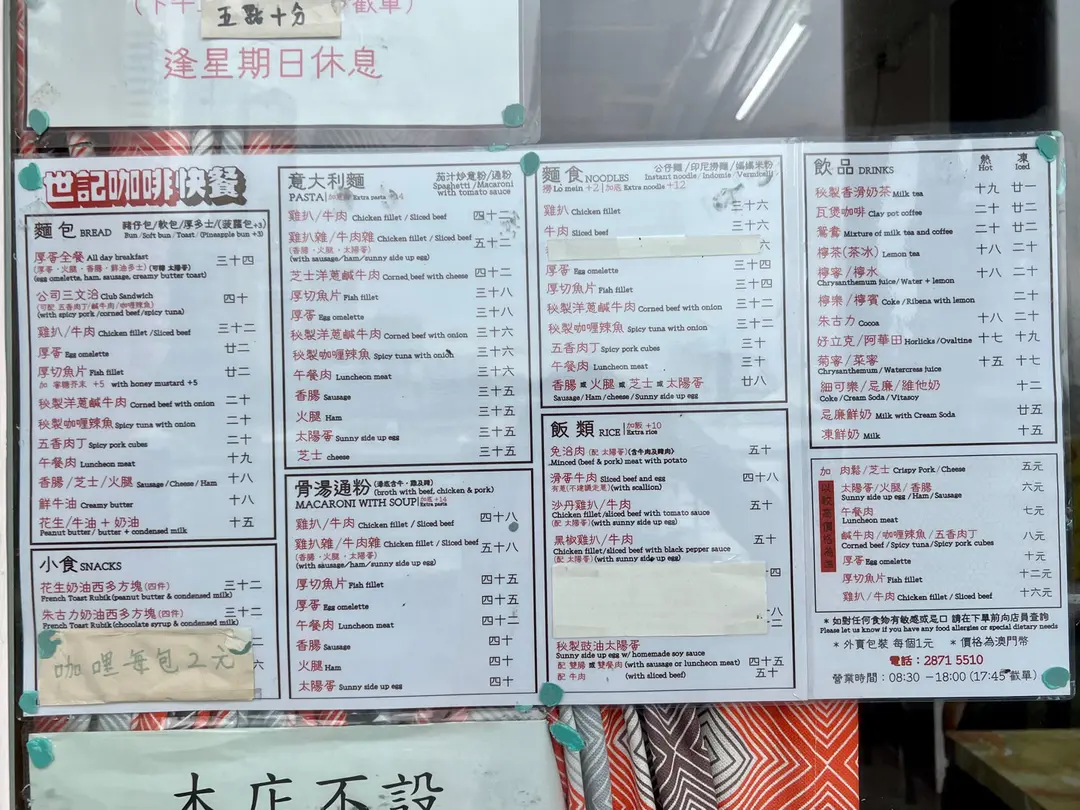 五點十分
逢星期日休息
世記咖啡快餐
麵包 BREAD 豬仔包/軟包/厚多士/(菠蘿包+3)
Bun / Soft bun / Toast / (Pineapple bun +3)
厚蛋全餐 All day breakfast 三十四
(厚蛋・火腿・香腸・鮮油多士) (可轉 太陽蛋)
(egg omelette, ham, sausage, creamy butter toast)
公司三文治 Club Sandwich 四十
(可配 五香肉丁/鹹牛肉/咖喱辣魚)
(with spicy pork/corned beef/spicy tuna)
雞扒/牛肉 Chicken fillet/Sliced beef 三十二
厚蛋 Egg omelette 廿二
厚切魚片 Fish fillet 廿二
加 蜜糖芥末 +5 with honey mustard +5
秘製洋蔥鹹牛肉 Corned beef with onion 二十
秘製咖喱辣魚 Spicy tuna with onion 二十
五香肉丁 Spicy pork cubes 二十
午餐肉 Luncheon meat 十九
香腸/芝士/火腿 Sausage / Cheese / Ham 十八
鮮牛油 Creamy butter 十八
花生/牛油 + 奶油 十五
Peanut butter / butter + condensed milk
小食 SNACKS
花生奶油西多方塊(四件) 三十二
French Toast Rubik(peanut butter & condensed milk)
朱古力奶油西多方塊(四件) 三十二
French Toast Rubik(chocolate syrup & condensed milk)
六
咖哩每包2元
意大利麵 茄汁炒意粉/通粉
PASTA Spaghetti / Macaroni
with tomato sauce
Extra pasta
雞扒/牛肉 Chicken fillet / Sliced beef 四十二
雞扒雜/牛肉雜 Chicken fillet / Sliced beef 五十二
(香腸・火腿・太陽蛋)
(with sausage/ham/sunny side up egg)
芝士洋蔥鹹牛肉 Corned beef with cheese 四十二
厚切魚片 Fish fillet 三十八
厚蛋 Egg omelette 三十八
秘製洋蔥鹹牛肉 Corned beef with onion 三十六
秘製咖喱辣魚 Spicy tuna with onion 三十六
午餐肉 Luncheon meat 三十六
香腸 Sausage 三十五
火腿 Ham 三十五
太陽蛋 Sunny side up egg 三十五
芝士 cheese 三十五
骨湯通粉 (湯底含牛，雞及豬)
(broth with beef, chicken & pork)
MACARONI WITH SOUP 加底 +14
Extra pasta
雞扒/牛肉 Chicken fillet / Sliced beef 四十八
雞扒雜/牛肉雜 Chicken fillet / Sliced beef 五十八
(香腸・火腿・太陽蛋)
(with sausage/ham/sunny side up egg)
厚切魚片 Fish fillet 四十五
厚蛋 Egg omelette 四十五
午餐肉 Luncheon meat 四十二
香腸 Sausage 四十
火腿 Ham 四十
太陽蛋 Sunny side up egg 四十
麵食 NOODLES 公仔麵/印尼撈麵/媽媽米粉
Instant noodle / Indomie / Vermicelli
撈 Lo mein +2 | 加底 Extra noodle +12
雞扒 Chicken fillet 三十六
牛肉 Sliced beef 三十六
六
厚蛋 Egg omelette 三十四
厚切魚片 Fish fillet 三十四
秘製洋蔥鹹牛肉 Corned beef with onion 三十二
秘製咖喱辣魚 Spicy tuna with onion 三十二
五香肉丁 Spicy pork cubes 三十
午餐肉 Luncheon meat 三十
香腸 或 火腿 或 芝士 或 太陽蛋 廿八
Sausage / Ham / cheese / Sunny side up egg
飯類 RICE 加飯 +10
Extra rice
免治肉 (配 太陽蛋)(含牛肉及豬肉) 五十
Minced (beef & pork) meat with potato
滑蛋牛肉 Sliced beef and egg 四十八
有蔥(不建議走蔥) (with scallion)
沙丹雞扒/牛肉 五十
Chicken fillet/sliced beef with tomato sauce
(配 太陽蛋)(with sunny side up egg)
黑椒雞扒/牛肉 五十
Chicken fillet/sliced beef with black pepper sauce
(配 太陽蛋)(with sunny side up egg)
四
八
秘製豉油太陽蛋
Sunny side up egg w/homemade soy sauce
配 雙腸 或 雙餐肉 (with sausage or luncheon meat) 四十五
配 牛肉 (with sliced beef) 五十
飲品 DRINKS 熱 Hot 凍 Iced
秘製香滑奶茶 Milk tea 十九 廿一
瓦煲咖啡 Clay pot coffee 二十 廿二
鴛鴦 Mixture of milk tea and coffee 二十 廿二
檸茶(茶冰) Lemon tea 十八 二十
檸蜜/檸水 十八 二十
Chrysanthemum juice/Water + lemon
檸樂/檸賓 Coke / Ribena with lemon 二十
朱古力 Cocoa 十八 二十
好立克/阿華田 Horlicks/Ovaltine 十七 十九
菊蜜/菜蜜 十五 十七
Chrysanthemum / Watercress juice
細可樂/忌廉/維他奶 十二
Coke / Cream Soda / Vitasoy
忌廉鮮奶 Milk with Cream Soda 廿五
凍鮮奶 Milk 十五
加 肉鬆/芝士 Crispy Pork / Cheese 五元
太陽蛋/火腿/香腸 六元
Sunny side up egg / Ham / Sausage
午餐肉 七元
Luncheon meat
鹹牛肉/咖喱辣魚/五香肉丁 八元
Corned beef / Spicy tuna / Spicy pork cubes
厚蛋 Egg omelette 十元
厚切魚片 Fish fillet 十二元
雞扒/牛肉 Chicken fillet / Sliced beef 十六元
* 如對任何食物有敏感或忌口 請在下單前向店員查詢
Please let us know if you have any food allergies or special dietary needs
* 外賣包裝 每個1元 * 價格為澳門幣
電話：2871 5510
營業時間：08:30 －18:00 (17:45 截單)
本店不設